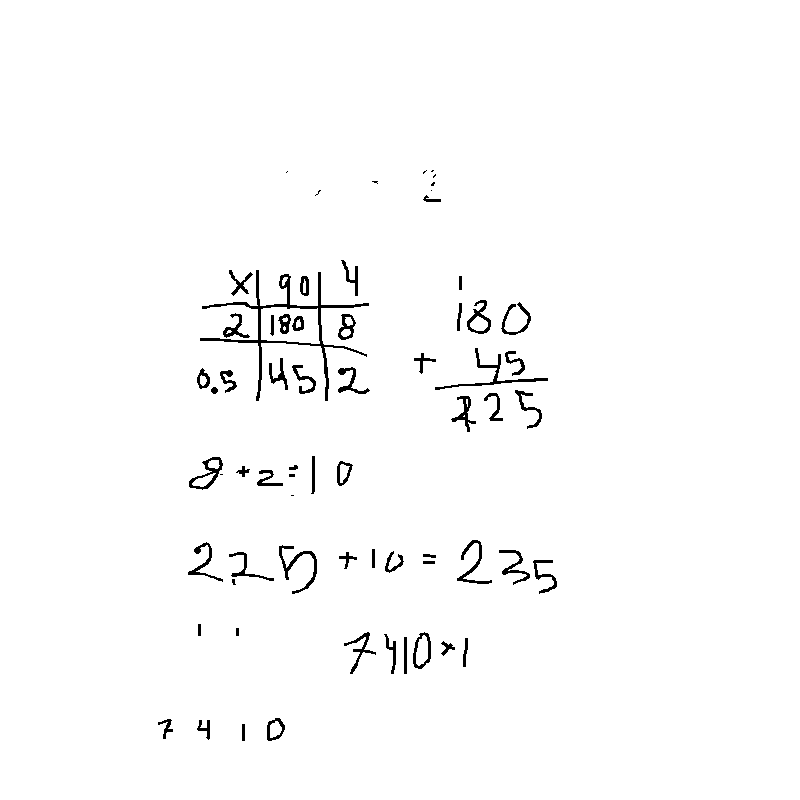 2
x 90 4
2 180 8
0.5 45 2
1
180
+ 45
225
8+2=10
225 + 10 = 235
7410×1
7 4 1 0